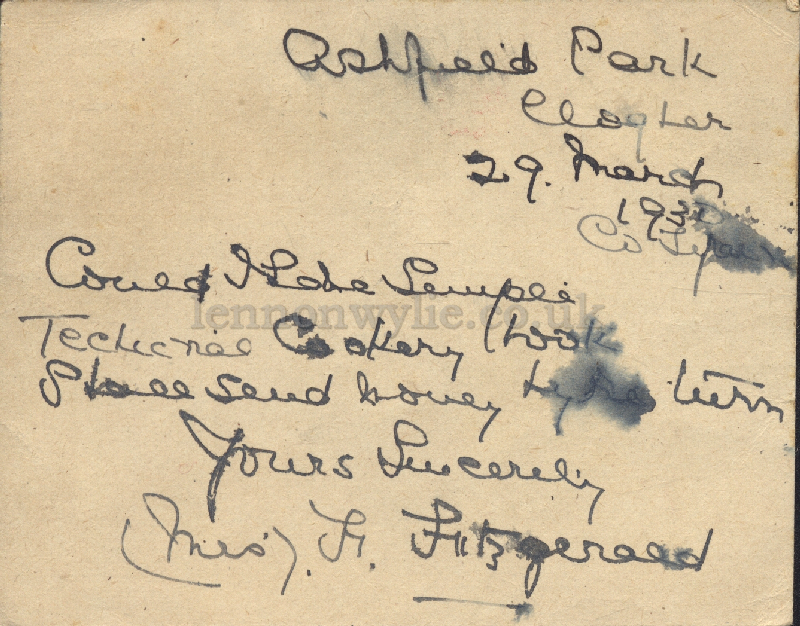 Ashfield Park
Clogher
29. March
193
Co Tyrone
Could I Have Sample
lennonwylie.co.uk
Technical Cookery book
send money by return
Yours Sincerely
(Mrs). H. Fitzgerald